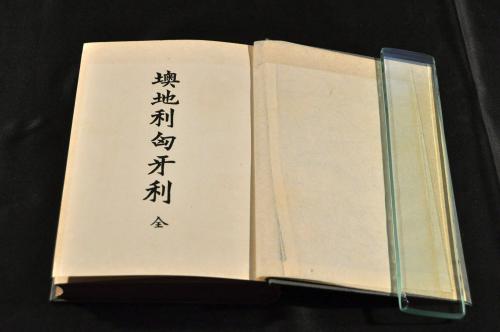 墺地利匈牙利
全